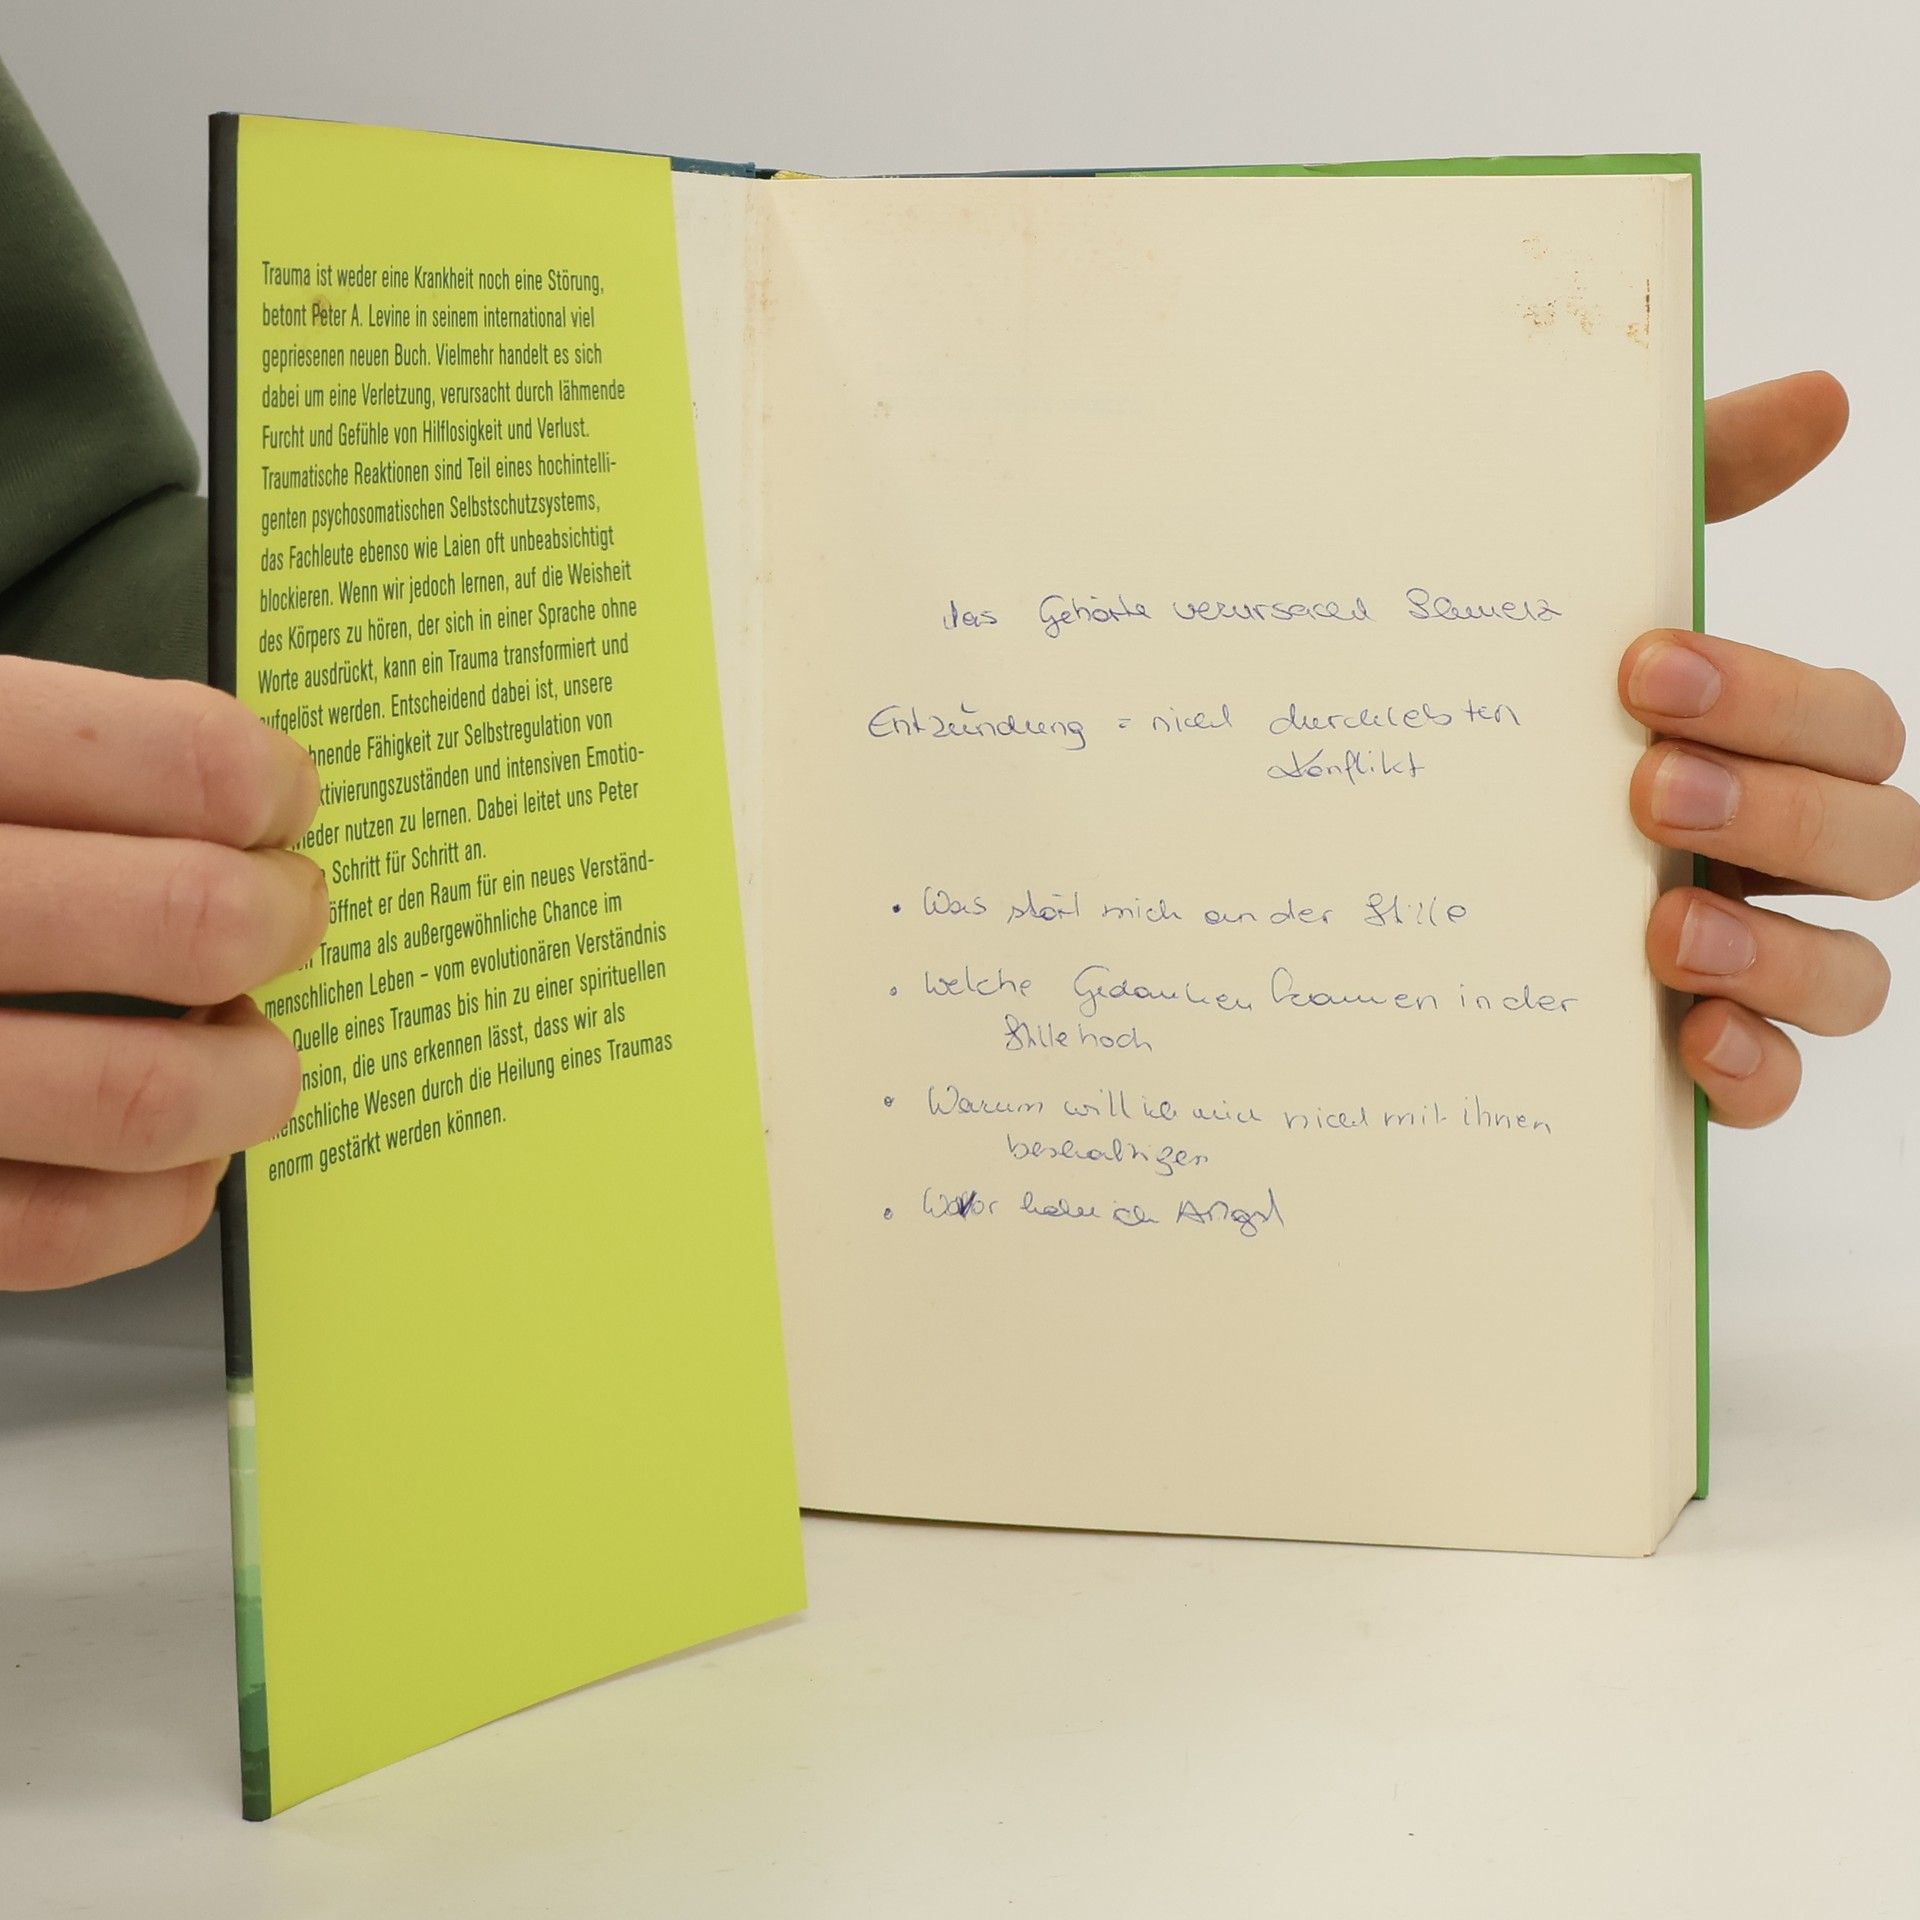 Trauma ist weder eine Krankheit noch eine Störung,
betont Peter A. Levine in seinem international viel
gepriesenen neuen Buch. Vielmehr handelt es sich
dabei um eine Verletzung, verursacht durch lähmende
Furcht und Gefühle von Hilflosigkeit und Verlust.
Traumatische Reaktionen sind Teil eines hochintelli-
genten psychosomatischen Selbstschutzsystems,
das Fachleute ebenso wie Laien oft unbeabsichtigt
blockieren. Wenn wir jedoch lernen, auf die Weisheit
des Körpers zu hören, der sich in einer Sprache ohne
Worte ausdrückt, kann ein Trauma transformiert und
aufgelöst werden. Entscheidend dabei ist, unsere
hnende Fähigkeit zur Selbstregulation von
ktivierungszuständen und intensiven Emotio-
ieder nutzen zu lernen. Dabei leitet uns Peter
Schritt für Schritt an.
öffnet er den Raum für ein neues Verständ-
Trauma als außergewöhnliche Chance im
menschlichen Leben – vom evolutionären Verständnis
Quelle eines Traumas bis hin zu einer spirituellen
nsion, die uns erkennen lässt, dass wir als
enschliche Wesen durch die Heilung eines Traumas
enorm gestärkt werden können.
das Gehörte verursacht Schmerz
Entzündung = nicht durchlebten
Konflikt
• Was stört mich an der Stille
• Welche Gedanken kommen in der
Stille hoch
• Warum will ich mich nicht mit ihnen
beschäftigen
• Wovor habe ich Angst